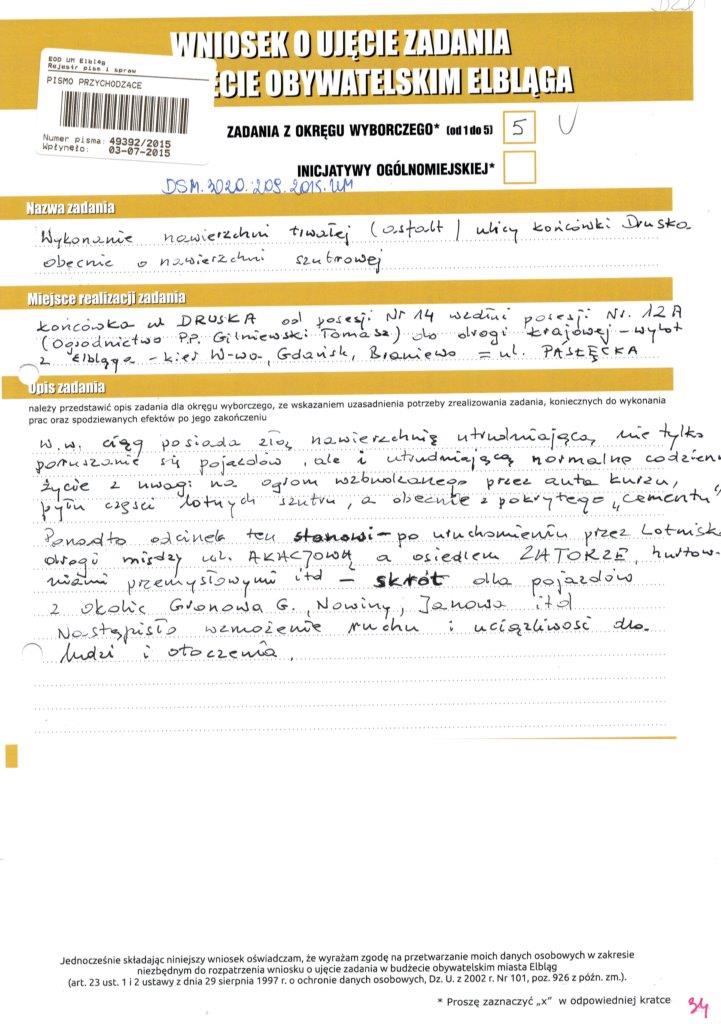 WNIOSEK O UJĘCIE ZADANIA
ECIE OBYWATELSKIM ELBLĄGA
EOD UM Elbląg
Rejestr pism i spraw
PISMO PRZYCHODZĄCE
Numer pisma: 49392/2015
Wpłynęło: 03-07-2015
ZADANIA Z OKRĘGU WYBORCZEGO* (od 1 do 5) 5
INICJATYWY OGÓLNOMIEJSKIEJ*
DSM.3020.209.2015.UM
Nazwa zadania
Wykonanie nawierzchni trwałej (asfalt) ulicy końcówki Druska
obecnie o nawierzchni szutrowej
Miejsce realizacji zadania
końcówka ul DRUSKA od posesji Nr 14 wzdłuż posesji Nr. 12A
(Ogrodnictwo P.P. Gilniewski Tomasz) do drogi krajowej – wylot
z Elbląga – kier W-wa, Gdańsk, Braniewo = ul. PASŁĘCKA
Opis zadania
należy przedstawić opis zadania dla okręgu wyborczego, ze wskazaniem uzasadnienia potrzeby zrealizowania zadania, koniecznych do wykonania
prac oraz spodziewanych efektów po jego zakończeniu
W.w. ciąg posiada złą nawierzchnię utrudniającą nie tylko
poruszanie się pojazdów, ale i utrudniającą normalne codzienn
życie z uwagi na ogrom wzbudzanego przez auta kurzu,
pyłu części lotnych szutru, a obecnie z pokrytego „cementu"
Ponadto odcinek ten stanowi – po uruchomieniu przez Lotnisk
drogi między ul. AKACJOWĄ a osiedlem ZATORZE, hurtow-
niami przemysłowymi itd – skrót dla pojazdów
z okolic Gronowa G., Nowiny, Janowa itd
Nastąpiło wzmożenie ruchu i uciążliwość dla
ludzi i otoczenia.
Jednocześnie składając niniejszy wniosek oświadczam, że wyrażam zgodę na przetwarzanie moich danych osobowych w zakresie
niezbędnym do rozpatrzenia wniosku o ujęcie zadania w budżecie obywatelskim miasta Elbląg
(art. 23 ust. 1 i 2 ustawy z dnia 29 sierpnia 1997 r. o ochronie danych osobowych, Dz. U. z 2002 r. Nr 101, poz. 926 z późn. zm.).
* Proszę zaznaczyć „x" w odpowiedniej kratce
34